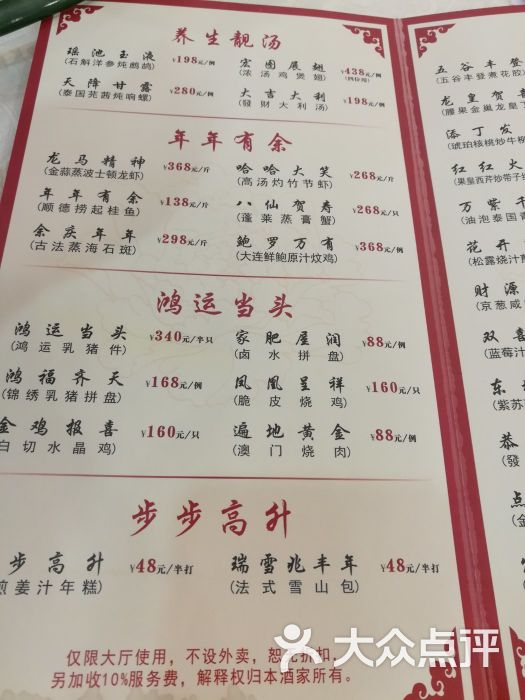 养生靓汤
瑶池玉液 ¥198元/例
(石斛洋参炖鹧鸪)
宏图展翅 ¥438元/例
(浓汤鸡煲翅)
天降甘露 ¥280元/例
(泰国芫茜炖响螺)
大吉大利 ¥198元/例
(發财大利汤)
年年有余
龙马精神 ¥368元/斤
(金蒜蒸波士顿龙虾)
哈哈大笑 ¥268元/斤
(高汤灼竹节虾)
年年有余 ¥138元/斤
(顺德捞起桂鱼)
八仙贺寿 ¥268元/只
(蓬莱蒸膏蟹)
余庆年年 ¥298元/斤
(古法蒸海石斑)
鲍罗万有 ¥368元/例
(大连鲜鲍原汁炆鸡)
鸿运当头
鸿运当头 ¥340元/半只
(鸿运乳猪件)
家肥屋润 ¥88元/例
(卤水拼盘)
鸿福齐天 ¥168元/例
(锦绣乳猪拼盘)
凤凰呈祥 ¥160元/只
(脆皮烧鸡)
金鸡报喜 ¥160元/只
白切水晶鸡)
遍地黄金 ¥88元/例
(澳门烧肉)
步步高升
步高升 ¥48元/半打
煎姜汁年糕)
瑞雪兆丰年 ¥48元/半打
(法式雪山包)
仅限大厅使用，不设外卖，恕无折扣，
另加收10%服务费，解释权归本酒家所有。
五谷丰登
(五谷丰登煮花胶
龙皇贺
(腰果金巢龙皇
添丁发
(琥珀核桃炒牛柳
红红火
(果皇西芹炒带子
万紫千
(油泡泰国
花开
(松露烧汁
财源
(京葱咸
双喜
(蓝莓汁
东
(紫苏
恭
(發
点
(金
大众点评